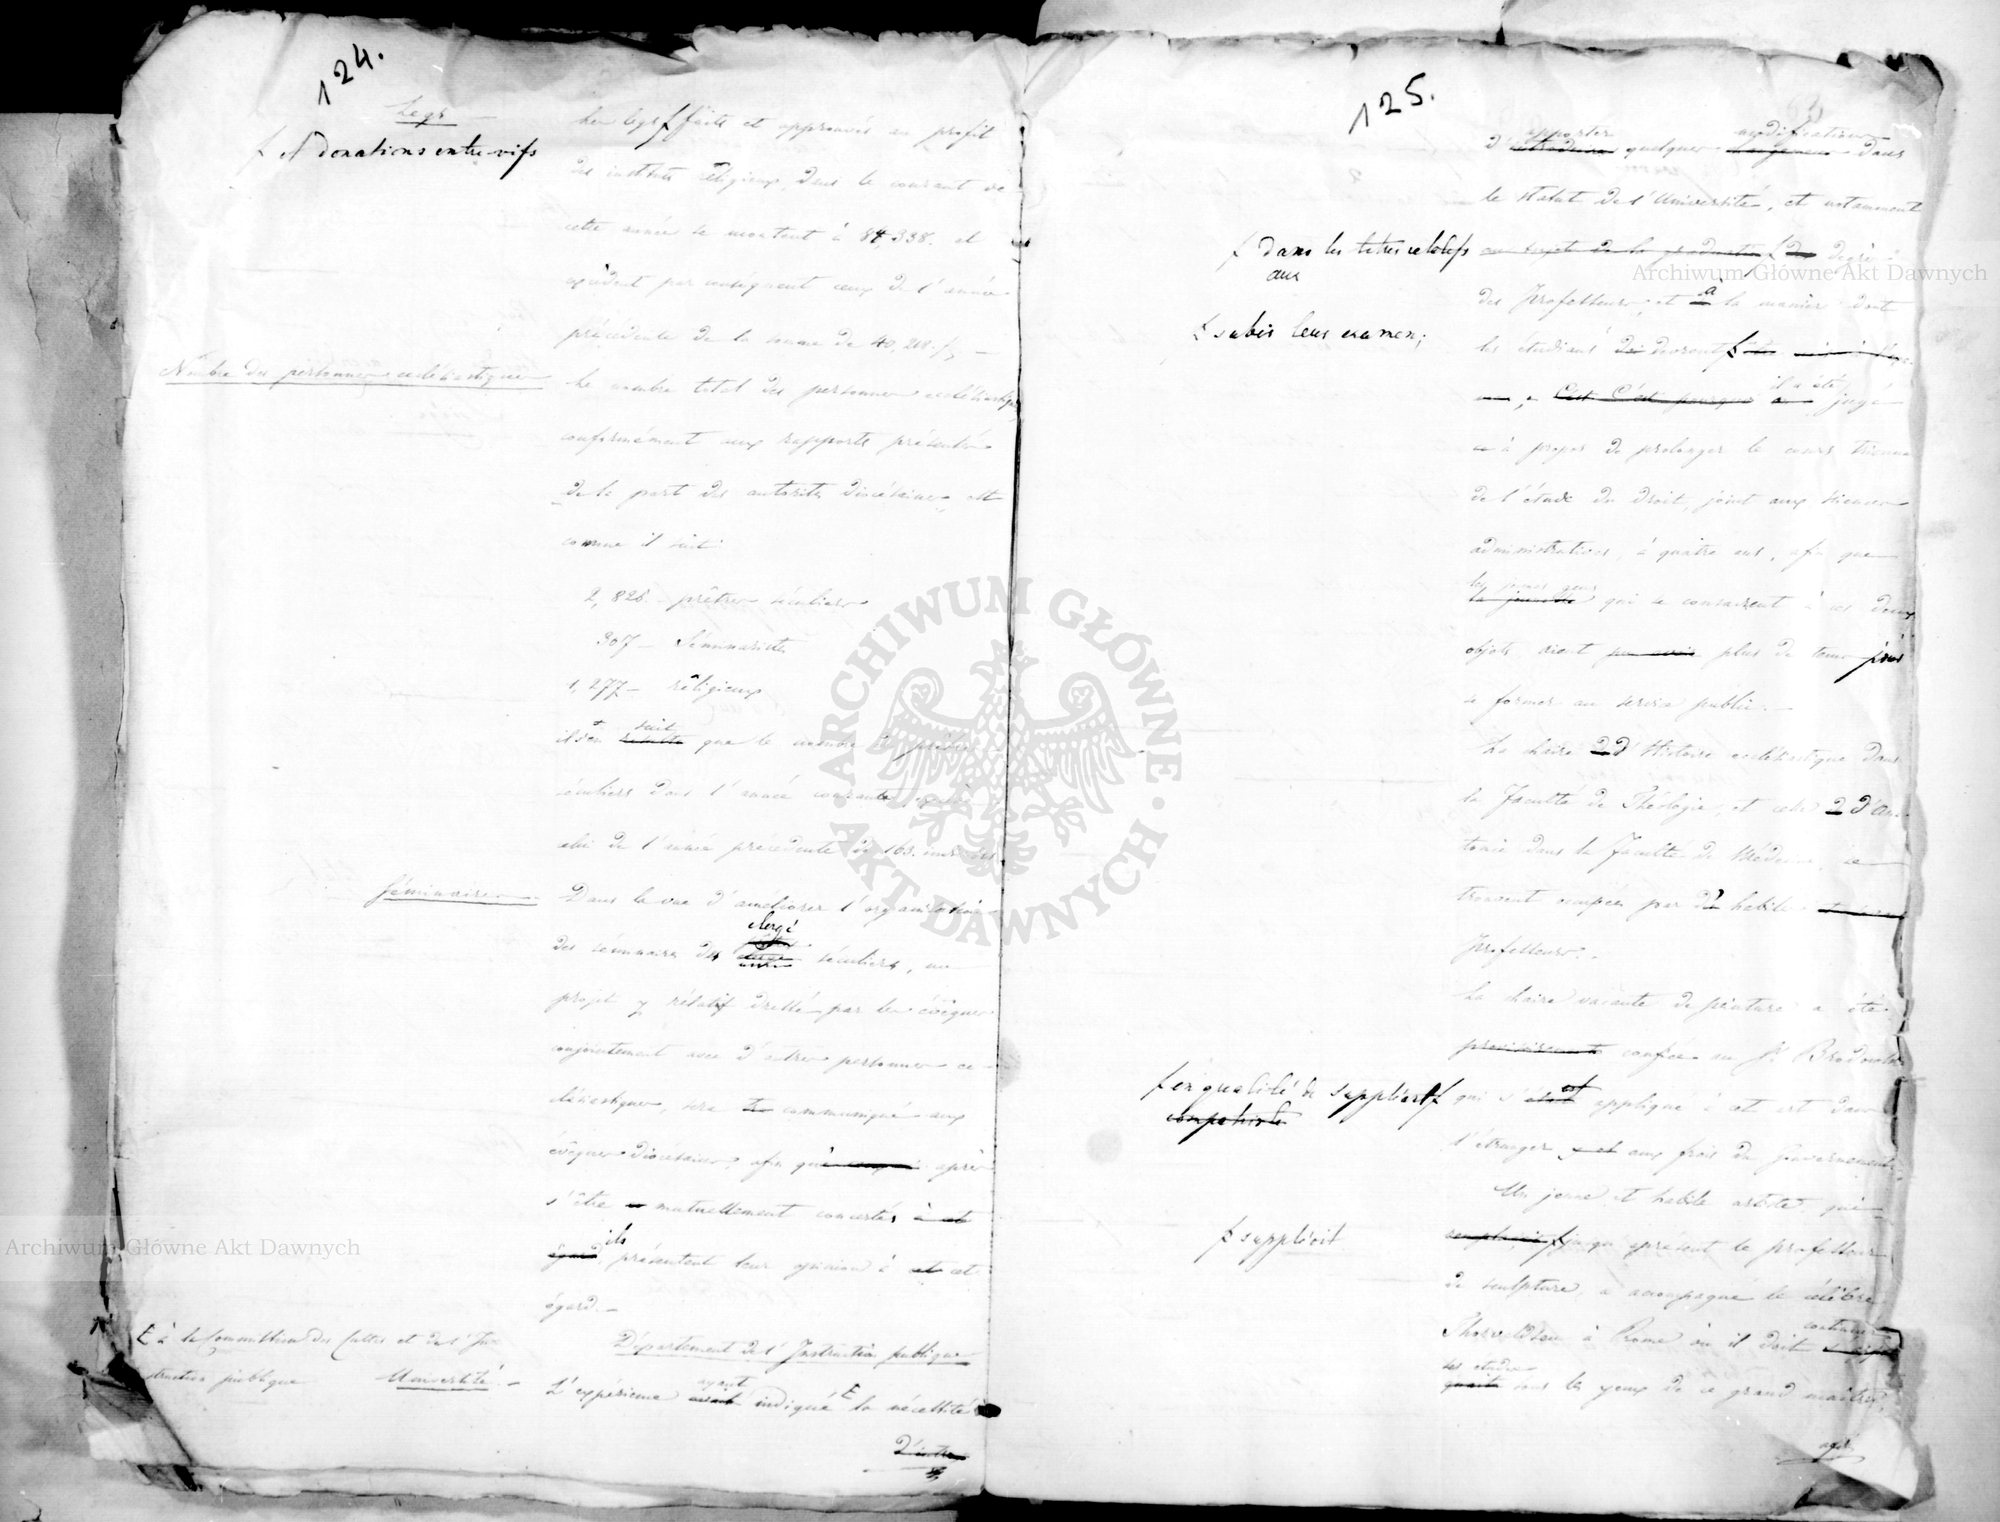 124.
Legs
f et donations entre-vifs
Les legs f faits et approuvés au profit
des instituts réligieux, dans le courant de
cette année se montent à 84 338. et
excédent par conséquent ceux de l'année
précédente de la somme de 40, 218. f
Nombre des personnes ecclésiastiques
Le nombre total des personnes ecclésiastiques
conformément aux rapports présentés
de la part des autorités diocésaines, est
comme il suit
2,826. prêtres séculiers
307 — Séminaristes
1,277 — réligieux
il s'en résulte suit que le nombre de prêtres
séculiers dans l'année courante
celui de l'année précédente de 163.
Séminaires
Dans la vue d'améliorer l'organisation
clergé
des séminaires des séculiers, un
projet y rélatif dressé par les évêques
conjointement avec d'autres personnes ec-
clésiastiques, sera communiqué aux
évêques diocésains, afin qu' après
s'être mutuellement concertés à cet
égard ils présentent leur opinion à cet
égard.
Département de l'Instruction publique
E à la Commission des Cultes et de l'Ins-
truction publique
Université.
L'expérience ayant indiqué E la nécessité
d'intro
125.
apporter modifications
d'introduire quelques changemens dans
le statut de l'Université, et notamment
f dans les titres relatifs
aux
au sujet de la graduation f des degrés
des Professeurs, et à la manière dont
f subir leurs examen;
les étudians devront f
C'est pourquoi il a été jugé
à propos de prolonger le cours
de l'étude du droit, joint aux sciences
administratives, à quatre ans, afin que
les jeunes gens
la jeunesse qui se consacrent à ces deux
objets aient plus de tems pour
se former au service public.
La chaire d'Histoire ecclésiastique dans
la Faculté de Théologie, et celle d'Ana-
tomie dans la Faculté de Médecine, se
trouvent occupées par d' habiles
Professeurs.
La chaire vacante de peinture a été
provisoirement confiée au Sr Brodowski
f en qualité de suppléant f
qui s'était est appliqué à cet art dans
l'étranger aux frais du Gouvernement.
Un jeune et habile artiste, qui
f suppléoit
remplaçoit f jusqu'à présent le professeur
de sculpture, a accompagné le célèbre
Thorvaldsen à Rome où il doit continuer
ses études
sous les yeux de ce grand maître,
Archiwum Główne Akt Dawnych
Archiwum Główne Akt Dawnych
ARCHIWUM GŁÓWNE AKT DAWNYCH